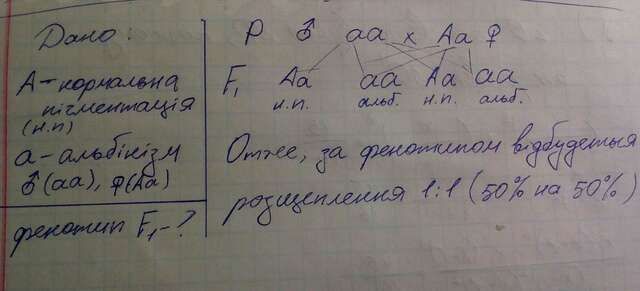 Дано:
А - нормальна
пігментація
(н.п)
а - альбінізм
♂(аа), ♀(Аа)
фенотип F₁ - ?
P ♂ аа x Аа ♀
F₁ Аа аа Аа аа
н.п. альб. н.п. альб.
Отже, за фенотипом відбудеться
розщеплення 1:1 (50% на 50%)